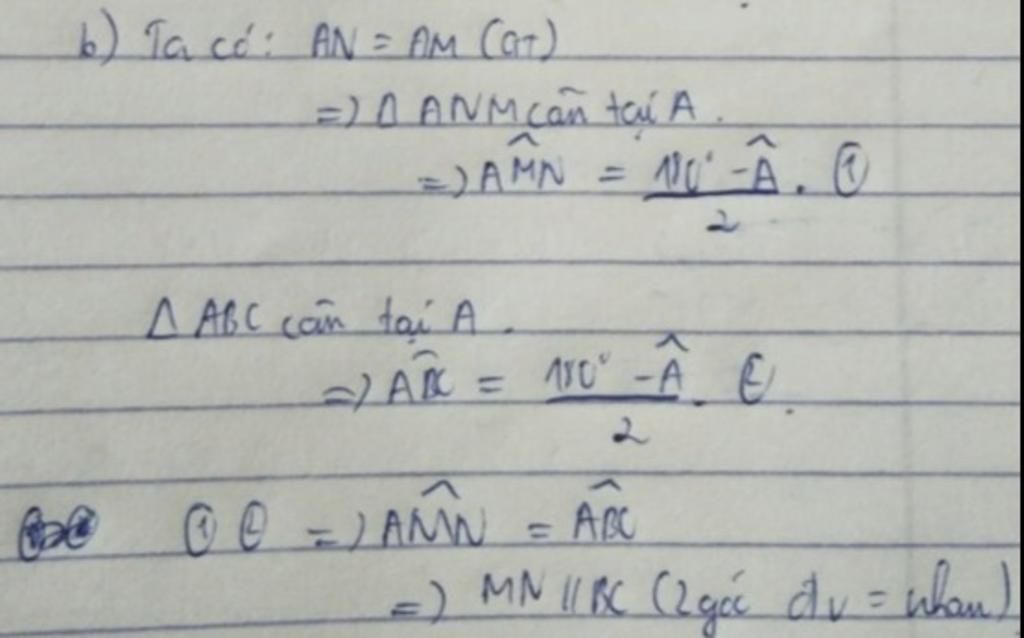 b) Ta có: AN = AM (GT)
=> Δ ANM cân tại A.
=> \widehat{AMN} = \frac{180° - \widehat{A}}{2}. ①
Δ ABC cân tại A.
=> \widehat{ABC} = \frac{180° - \widehat{A}}{2}. ②
① ② => \widehat{AMN} = \widehat{ABC}
=> MN // BC (2 góc đv = nhau)